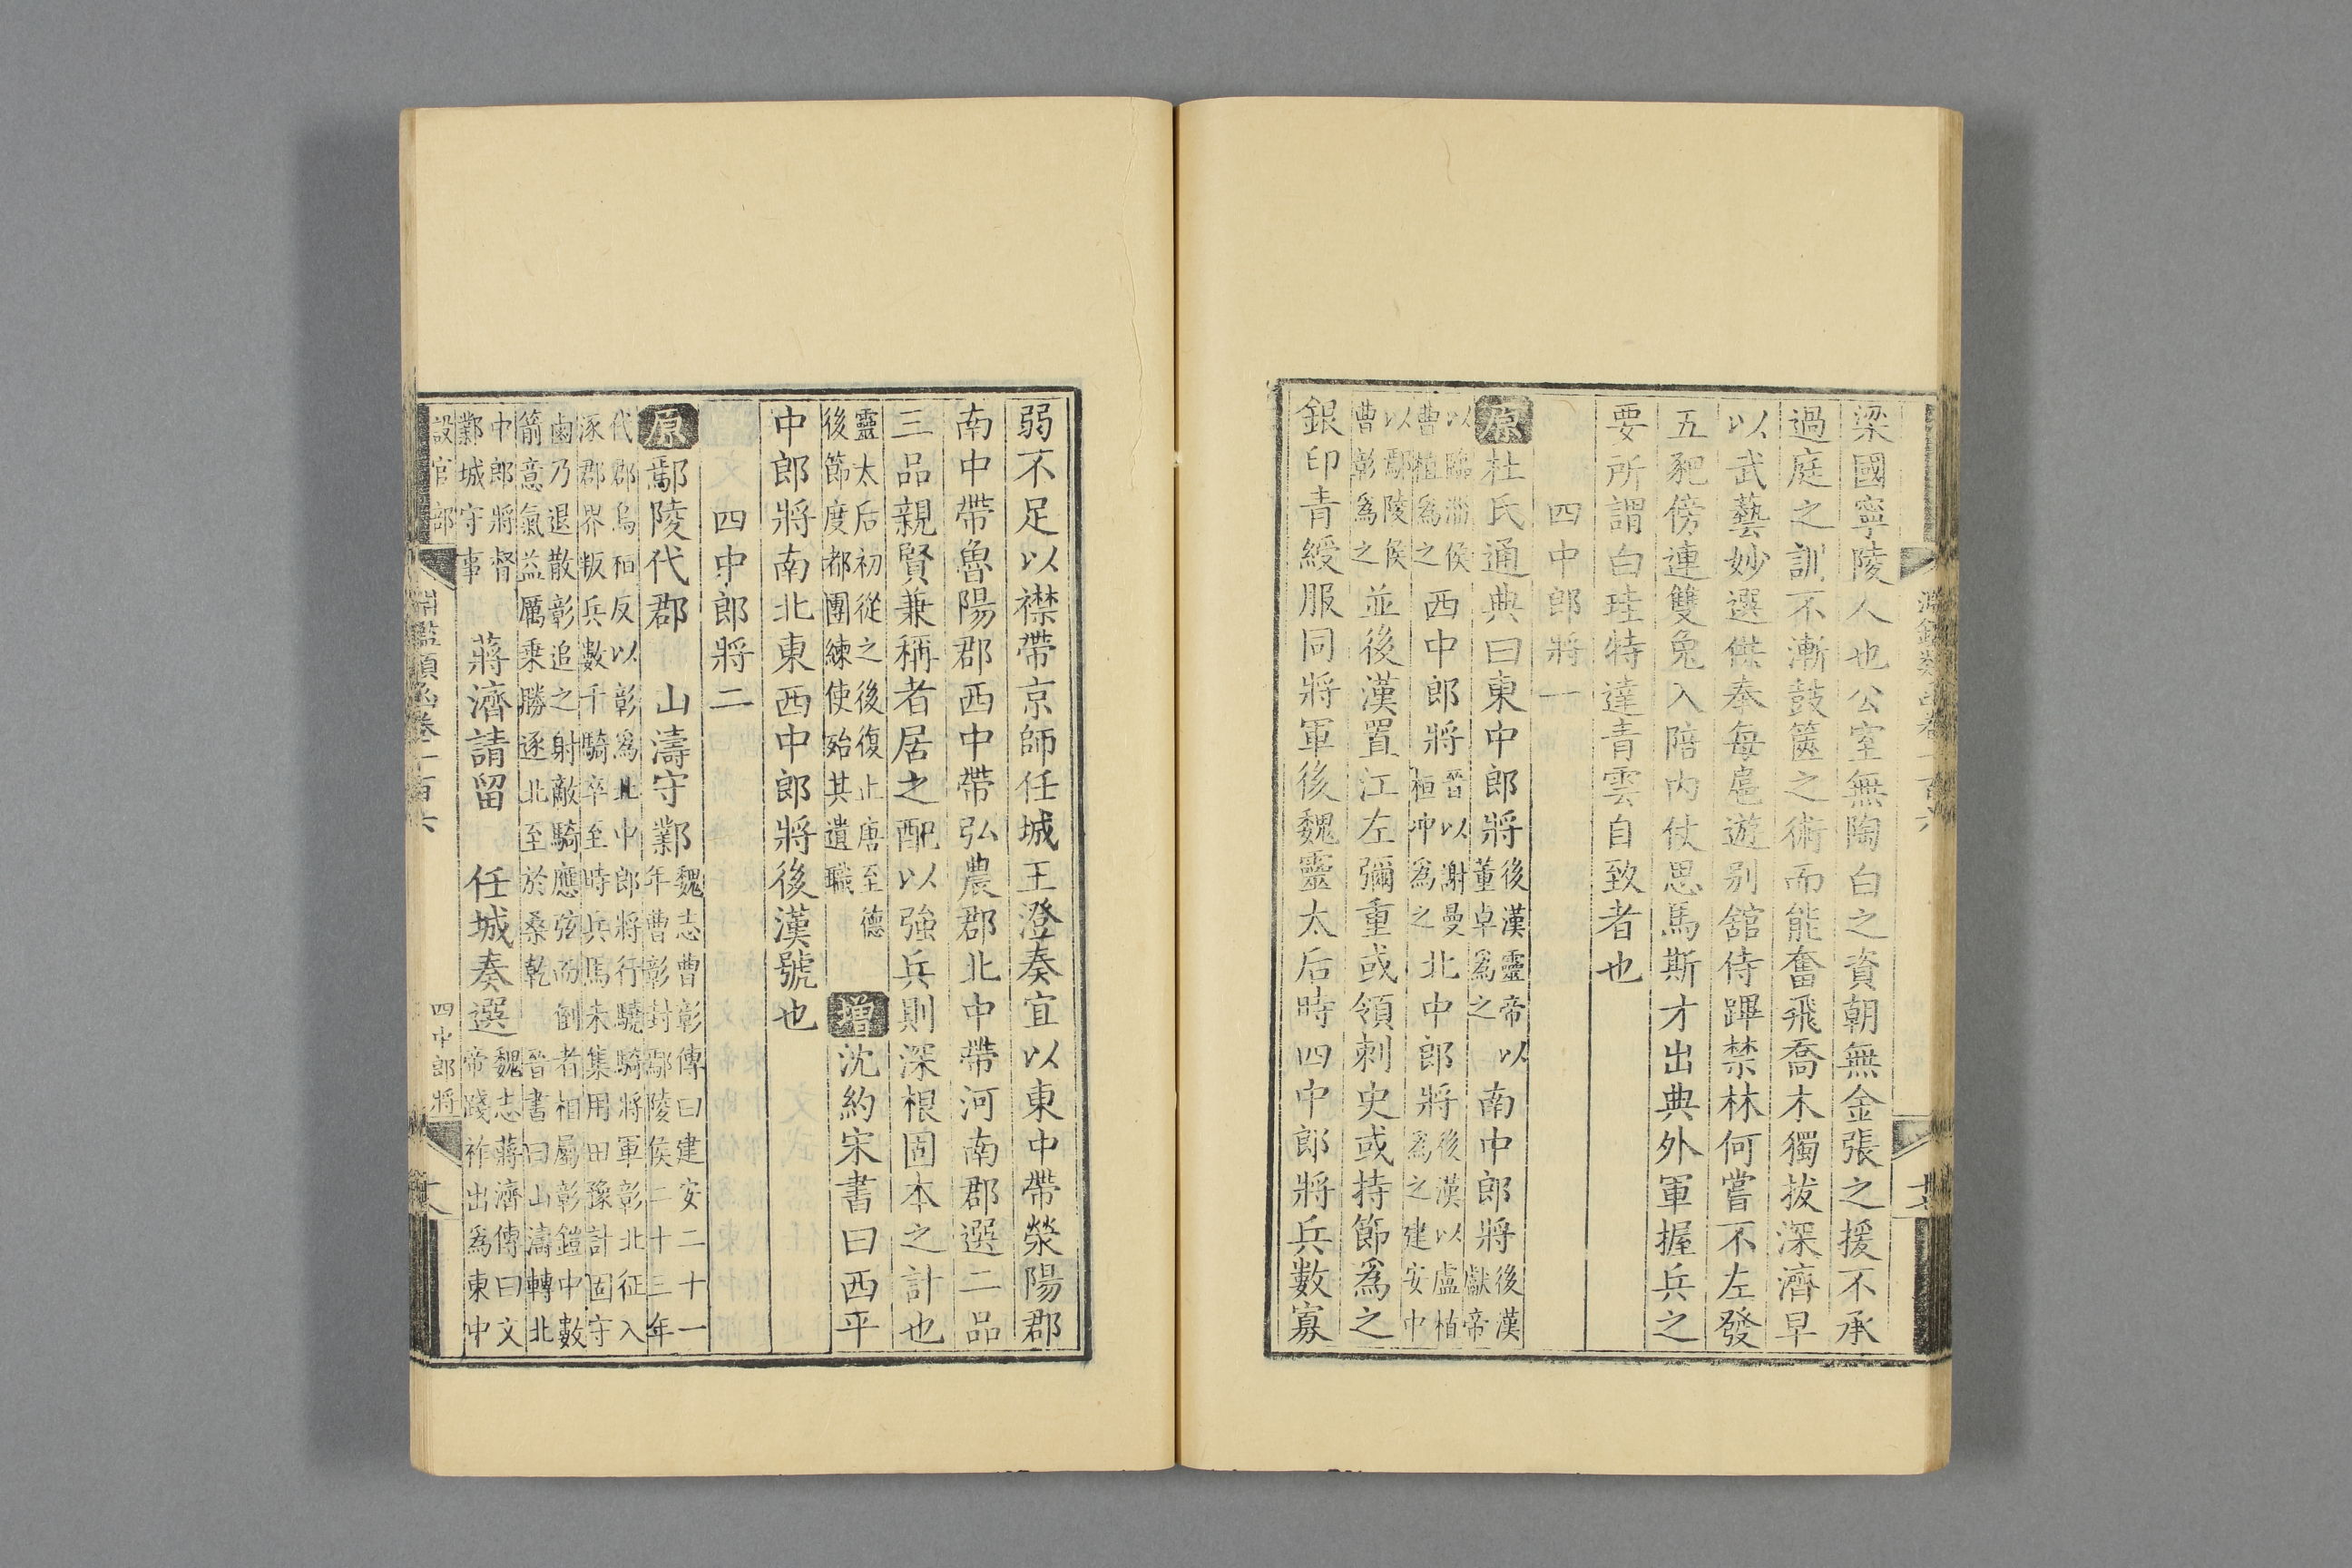 梁國寧陵人也公室無陶白之資朝無金張之援不承
過庭之訓不漸鼓篋之術而能奮飛喬木獨拔深濟早
以武藝妙選傑奉每扈遊別舘侍蹕禁林何嘗不左發
五豝傍連雙兔入陪内仗思馬斯才出典外軍握兵之
要所謂白珪特達青雲自致者也
四中郎將一
原杜氏通典曰東中郎將後漢靈帝以董卓爲之南中郎將後漢獻帝
以臨淄侯曹植爲之西中郎將晉以謝曼桓冲爲之北中郎將後漢以盧植爲之建安中
以鄢陵侯曹彰爲之並後漢置江左彌重或領刺史或持節爲之
銀印青綬服同將軍後魏靈太后時四中郎將兵數寡
弱不足以襟帶京師任城王澄奏宜以東中帶滎陽郡
南中帶魯陽郡西中帶弘農郡北中帶河南郡選二品
三品親賢兼稱者居之配以強兵則深根固本之計也
靈太后初從之後復止唐至德後節度都團練使殆其遺職增沈約宋書曰西平
中郎將南北東西中郎將後漢號也
四中郎將二
原鄢陵代郡 山濤守鄴魏志曹彰傳曰建安二十一年曹彰封鄢陵侯二十三年
代郡烏桓反以彰爲北中郎將行驍騎將軍彰北征入涿郡界叛兵數千騎卒至時兵馬未集用田豫計固守
鹵乃退散彰追之射敵騎應弦而倒者相屬彰鎧中數箭意氣益厲乗勝逐北至於桑乾 晉書曰山濤轉北
中郎將督鄴城守事 蔣濟請留 任城奏選魏志蔣濟傳曰文帝踐祚出爲東中
設官部
淵鑑類函卷一百六
四中郎將